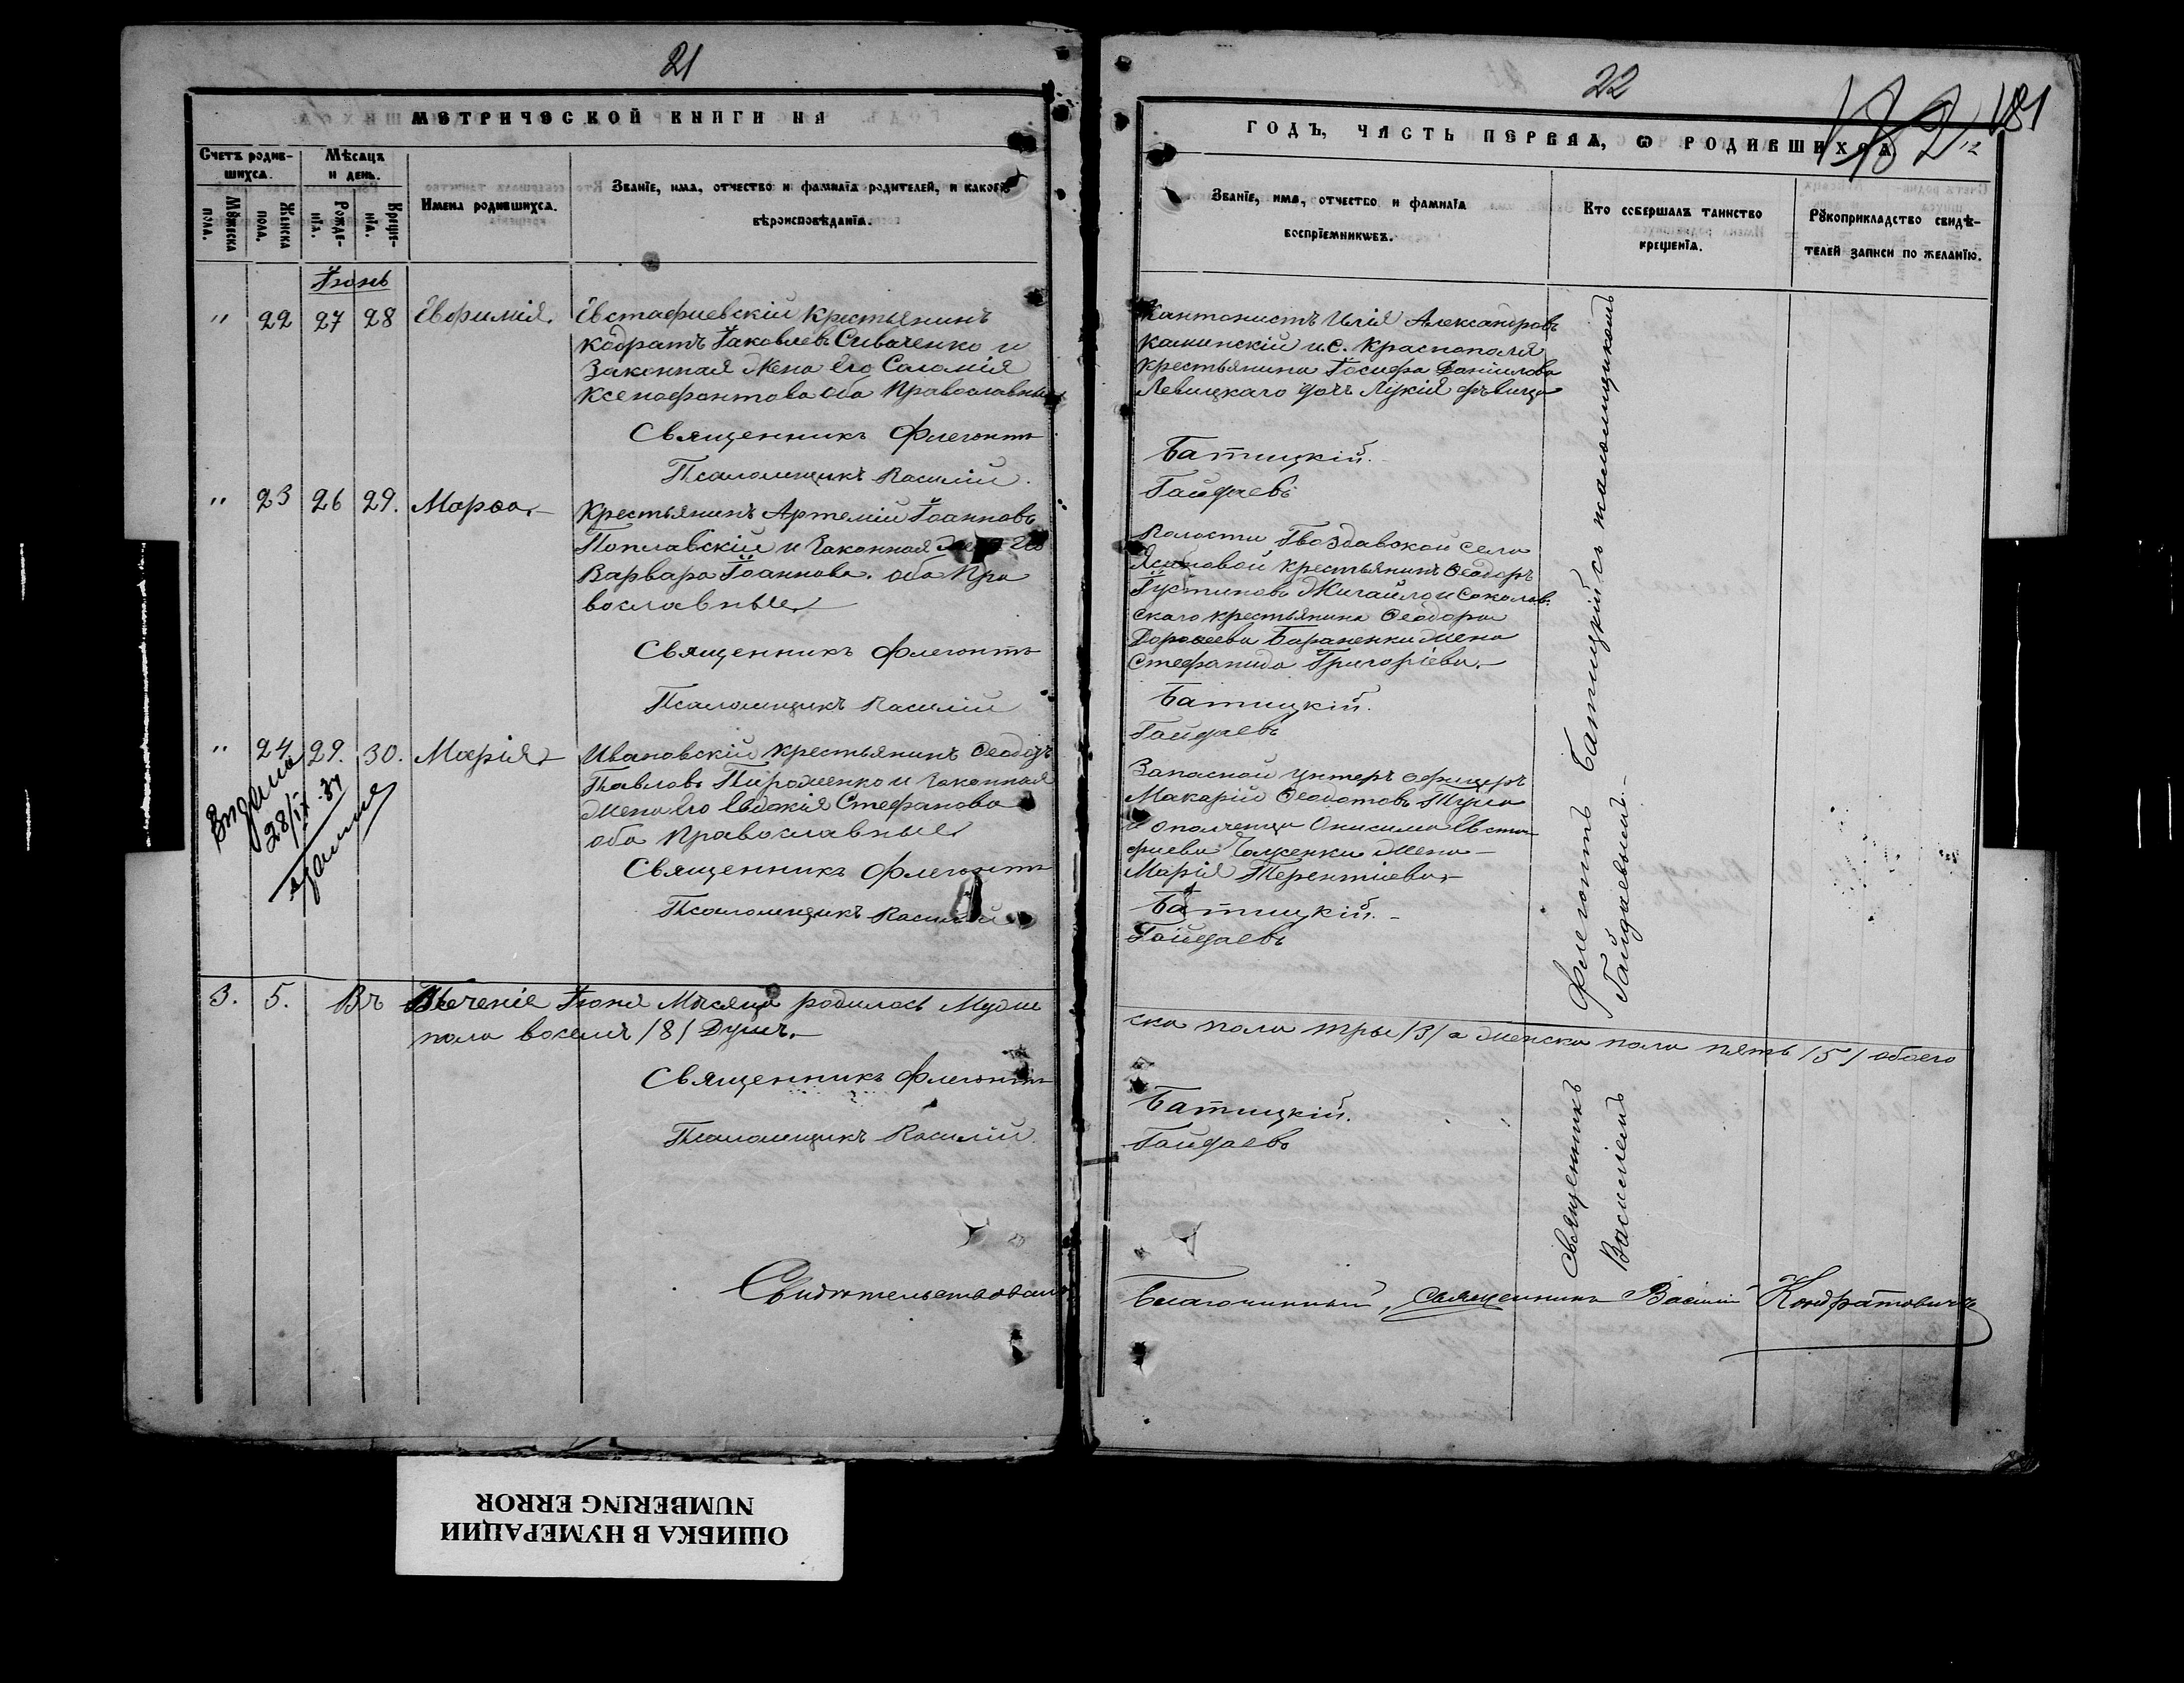 21
МЕТРИЧЕСКОЙ КНИГИ НА
Счетъ родив-
шихся.
Мѣсяцъ
и день.
Мꙋжеска
пола.
Женска
пола.
Рожде-
нїа.
Креще-
нїа.
Имена родившихся.
Званїе, имя, отчество и фамилїа родителей, и какогѡ
вѣроисповѣданїа.
Іюнь
" 22 27 28 Евфимія.
Евстафиевскій крестьянинъ
кодратъ Іаковлевъ Сиваченко и
Законная Жена его Саломія
Ксенофонтова оба Православные
Священникъ Флегонтъ
Псаломщикъ Василій.
" 23 26 29. Марѳа.
Крестьянинъ Артемій Іоанновъ
Поплавскій и Законная Его
Варвара Іоаннова. оба Пра
вославные
Священникъ Флегонтъ
Псаломщикъ Василій
" 24. 29. 30. Марія
Ивановскій крестьянинъ Ѳеодоръ
Павловъ Пироженко и Законная
Жена его Евдокія Стефанова
оба Православные
Священникъ Флегонтъ
Псаломщикъ Василій
28/IX-37
3. 5. Въ теченіе Іюня Мѣсяца родилось Муже
пола восемь /8/ Душъ.
Священникъ Флегонтъ
Псаломщикъ Василій.
Свидѣтельствовалъ
22
182
181
ГОДЪ, ЧАСТЬ ПЕРВАЯ, Ѡ РОДИВШИХСЯ.
Званїе, имя, отчество и фамилїа
воспрїемникѡвъ.
Кто совершалъ таинство
крещенїа.
Рꙋкоприкладство свидѣ-
телей записи по желанїю.
Кантонистъ Илія Александровъ
Каминскій и С. Краснополя
крестьянина Іосифа Даниилова
Левицкаго дочь Лукія дѣвица
Батицкій.
Гайдаевъ
Волости Гвоздавской села
Ясиновой крестьянинъ Ѳеодоръ
Іустиновъ Жигайло и Соколов-
скаго крестьянина Ѳеодора
Дороѳеева Бараненки жена
Стефанида Григоріева.
Батицкій.
Гайдаевъ
Запасной Унтеръ офицеръ
Макарій Ѳеодотовъ
и ополченца Онисима Евста-
фиева жена
Марія Терентиева
Батицкій.
Гайдаевъ
Священникъ Флегонтъ Батицкій съ псаломщикомъ
Василіемъ Гайдаевымъ.
ска пола три /3/ а женска пола пять /5/ обоего
Батицкій.
Гайдаевъ
Благочинный, священникъ Василій Кондратовичъ
ОШИБКА В НУМЕРАЦИИ
NUMBERING ERROR